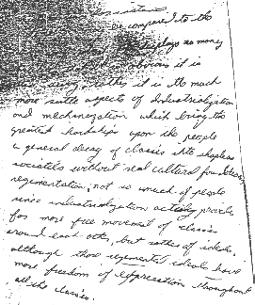 be compared to the
displays no money
obvious it is
this it is the much
more subtle aspects of Industrialization
and mechanization which bring the
greatest hardships upon the people
a general decay of classes into shapeless
societies without real cultural foundations,
regementation, not so much of people
since industrialization actually provides
for more free movement of classes
around each other, but rather of ideals,
although those regemented ideals have
more freedom of expression throughout
all the classes.